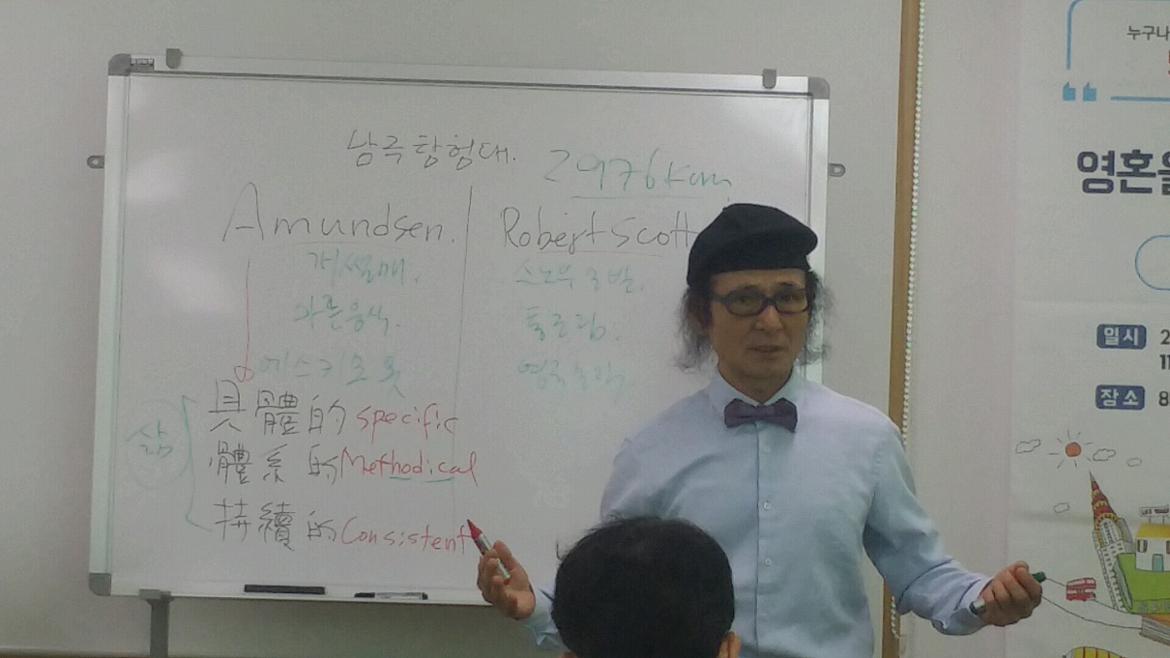 남극탐험대.
2976km
Amundsen.
Robert Scott
개썰매.
스노우모빌.
마른음식.
통조림.
에스키모옷
영국
具體的 specific
體系的 Methodical
持續的 Consistent
삶
누구나
영혼을
일시 2
11
장소 8